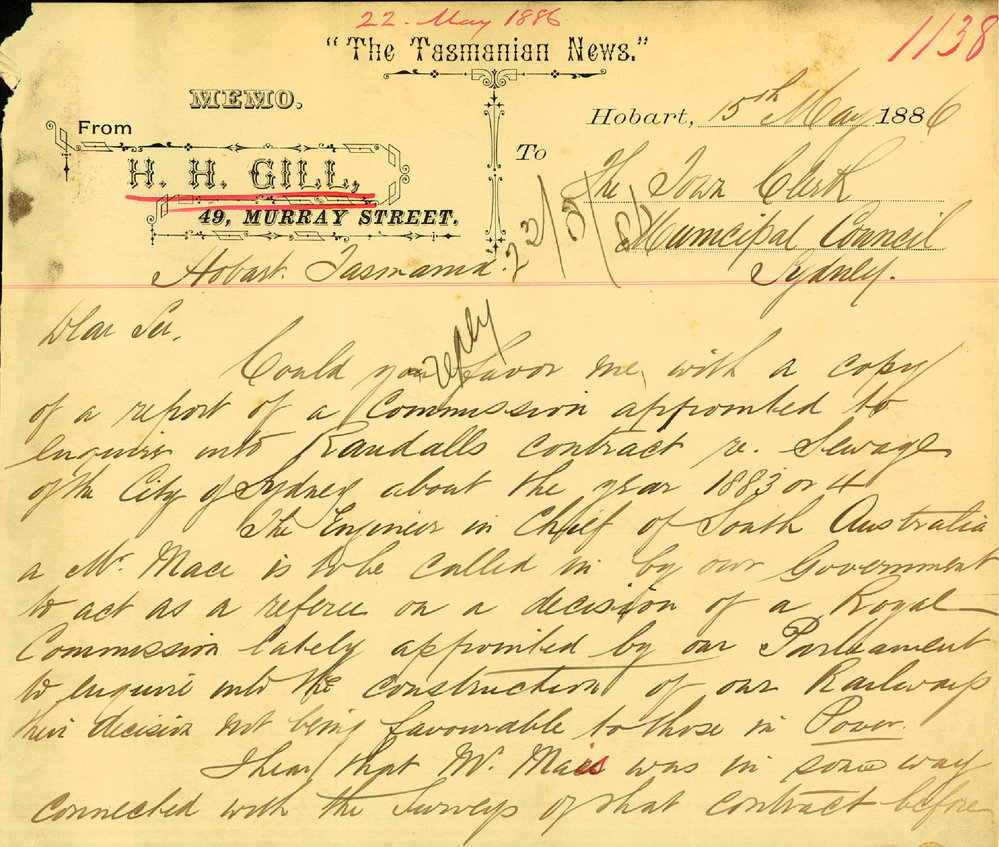 22. May 1886
1138
"The Tasmanian News."
MEMO.
From
H. H. GILL,
49, MURRAY STREET.
Hobart. Tasmania.
Hobart, 15th May 1886
To
The Town Clerk
Municpal Council
Sydney.
22/5/86
reply
Dear Sir,
Could you favor me, with a copy
of a report of a Commission appointed to
enquire into Randalls contract re. Sewage
of the City of Sydney about the year 1883 or 4
The Engineer in Chief of South Australia
a Mr. Mace is to be called in by our Government
to act as a referee on a decision of a Royal
Commission lately appointed by our Parliament
to enquire into the construction of our Railways
their decision not being favourable to those in Power.
I hear that Mr. Mais was in some way
connected with the Surveys of that contract before